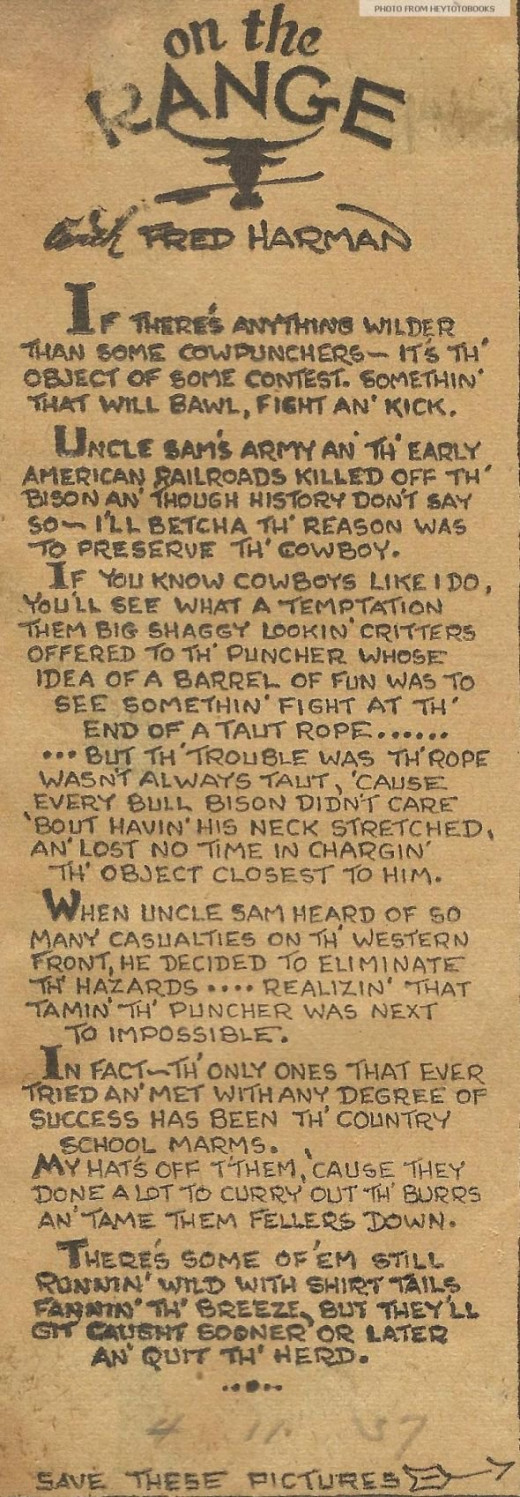 PHOTO FROM HEYTOTOBOOKS
on the
RANGE
with FRED HARMAN
IF THERE'S ANYTHING WILDER
THAN SOME COWPUNCHERS— IT'S TH'
OBJECT OF SOME CONTEST. SOMETHIN'
THAT WILL BAWL, FIGHT AN' KICK.
UNCLE SAM'S ARMY AN' TH' EARLY
AMERICAN RAILROADS KILLED OFF TH'
BISON AN' THOUGH HISTORY DON'T SAY
SO— I'LL BETCHA TH' REASON WAS
TO PRESERVE TH' COWBOY.
IF YOU KNOW COWBOYS LIKE I DO,
YOU'LL SEE WHAT A TEMPTATION
THEM BIG SHAGGY LOOKIN' CRITTERS
OFFERED TO TH' PUNCHER WHOSE
IDEA OF A BARREL OF FUN WAS TO
SEE SOMETHIN' FIGHT AT TH'
END OF A TAUT ROPE......
... BUT TH' TROUBLE WAS TH' ROPE
WASN'T ALWAYS TAUT, 'CAUSE
EVERY BULL BISON DIDN'T CARE
'BOUT HAVIN' HIS NECK STRETCHED,
AN' LOST NO TIME IN CHARGIN'
TH' OBJECT CLOSEST TO HIM.
WHEN UNCLE SAM HEARD OF SO
MANY CASUALTIES ON TH' WESTERN
FRONT, HE DECIDED TO ELIMINATE
TH' HAZARDS .... REALIZIN' THAT
TAMIN' TH' PUNCHER WAS NEXT
TO IMPOSSIBLE.
IN FACT— TH' ONLY ONES THAT EVER
TRIED AN' MET WITH ANY DEGREE OF
SUCCESS HAS BEEN TH' COUNTRY
SCHOOL MARMS.
MY HAT'S OFF T' THEM, 'CAUSE THEY
DONE A LOT TO CURRY OUT TH' BURRS
AN' TAME THEM FELLERS DOWN.
THERE'S SOME OF 'EM STILL
RUNNIN' WILD WITH SHIRT TAILS
FANNIN' TH' BREEZE, BUT THEY'LL
GIT CAUGHT SOONER OR LATER
AN' QUIT TH' HERD.
4 11 37
SAVE THESE PICTURES